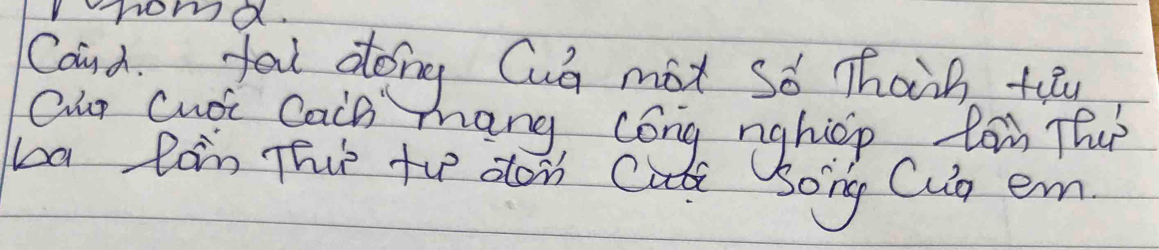 Nhóm 2.
Câu 2. tác động Của một Số Thành tựu
Của Cuộc Cách mạng công nghiệp lần Thứ
ba lần Thứ tư đến Cuộc Sống Của em.